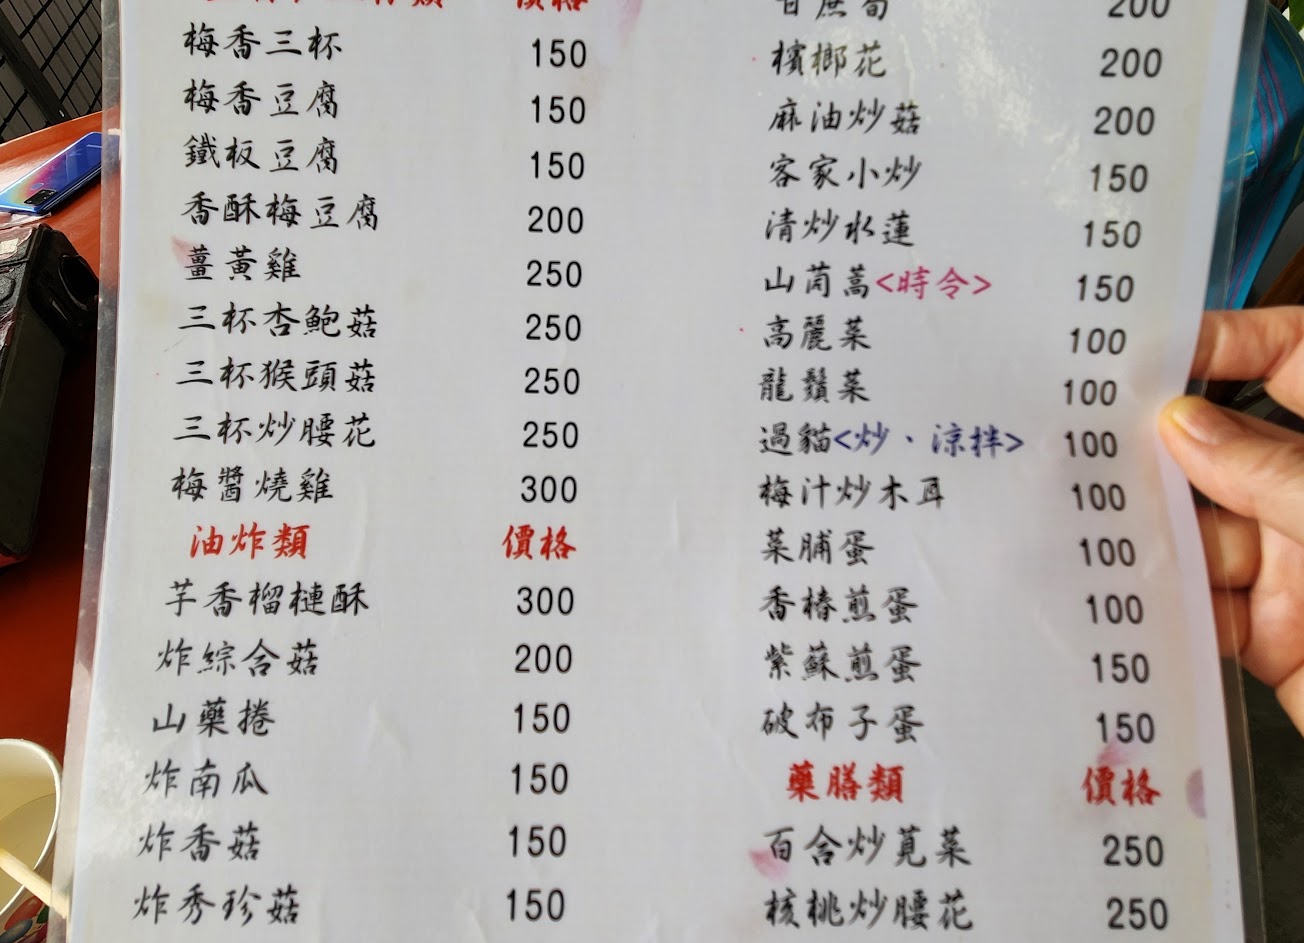 價格
梅香三杯 150
梅香豆腐 150
鐵板豆腐 150
香酥梅豆腐 200
薑黃雞 250
三杯杏鮑菇 250
三杯猴頭菇 250
三杯炒腰花 250
梅醬燒雞 300
油炸類 價格
芋香榴槤酥 300
炸綜合菇 200
山藥捲 150
炸南瓜 150
炸香菇 150
炸秀珍菇 150
甘蔗筍 200
檳榔花 200
麻油炒菇 200
客家小炒 150
清炒水蓮 150
山茼蒿<時令> 150
高麗菜 100
龍鬚菜 100
過貓<炒、涼拌> 100
梅汁炒木耳 100
菜脯蛋 100
香椿煎蛋 100
紫蘇煎蛋 150
破布子蛋 150
藥膳類 價格
百合炒莧菜 250
核桃炒腰花 250